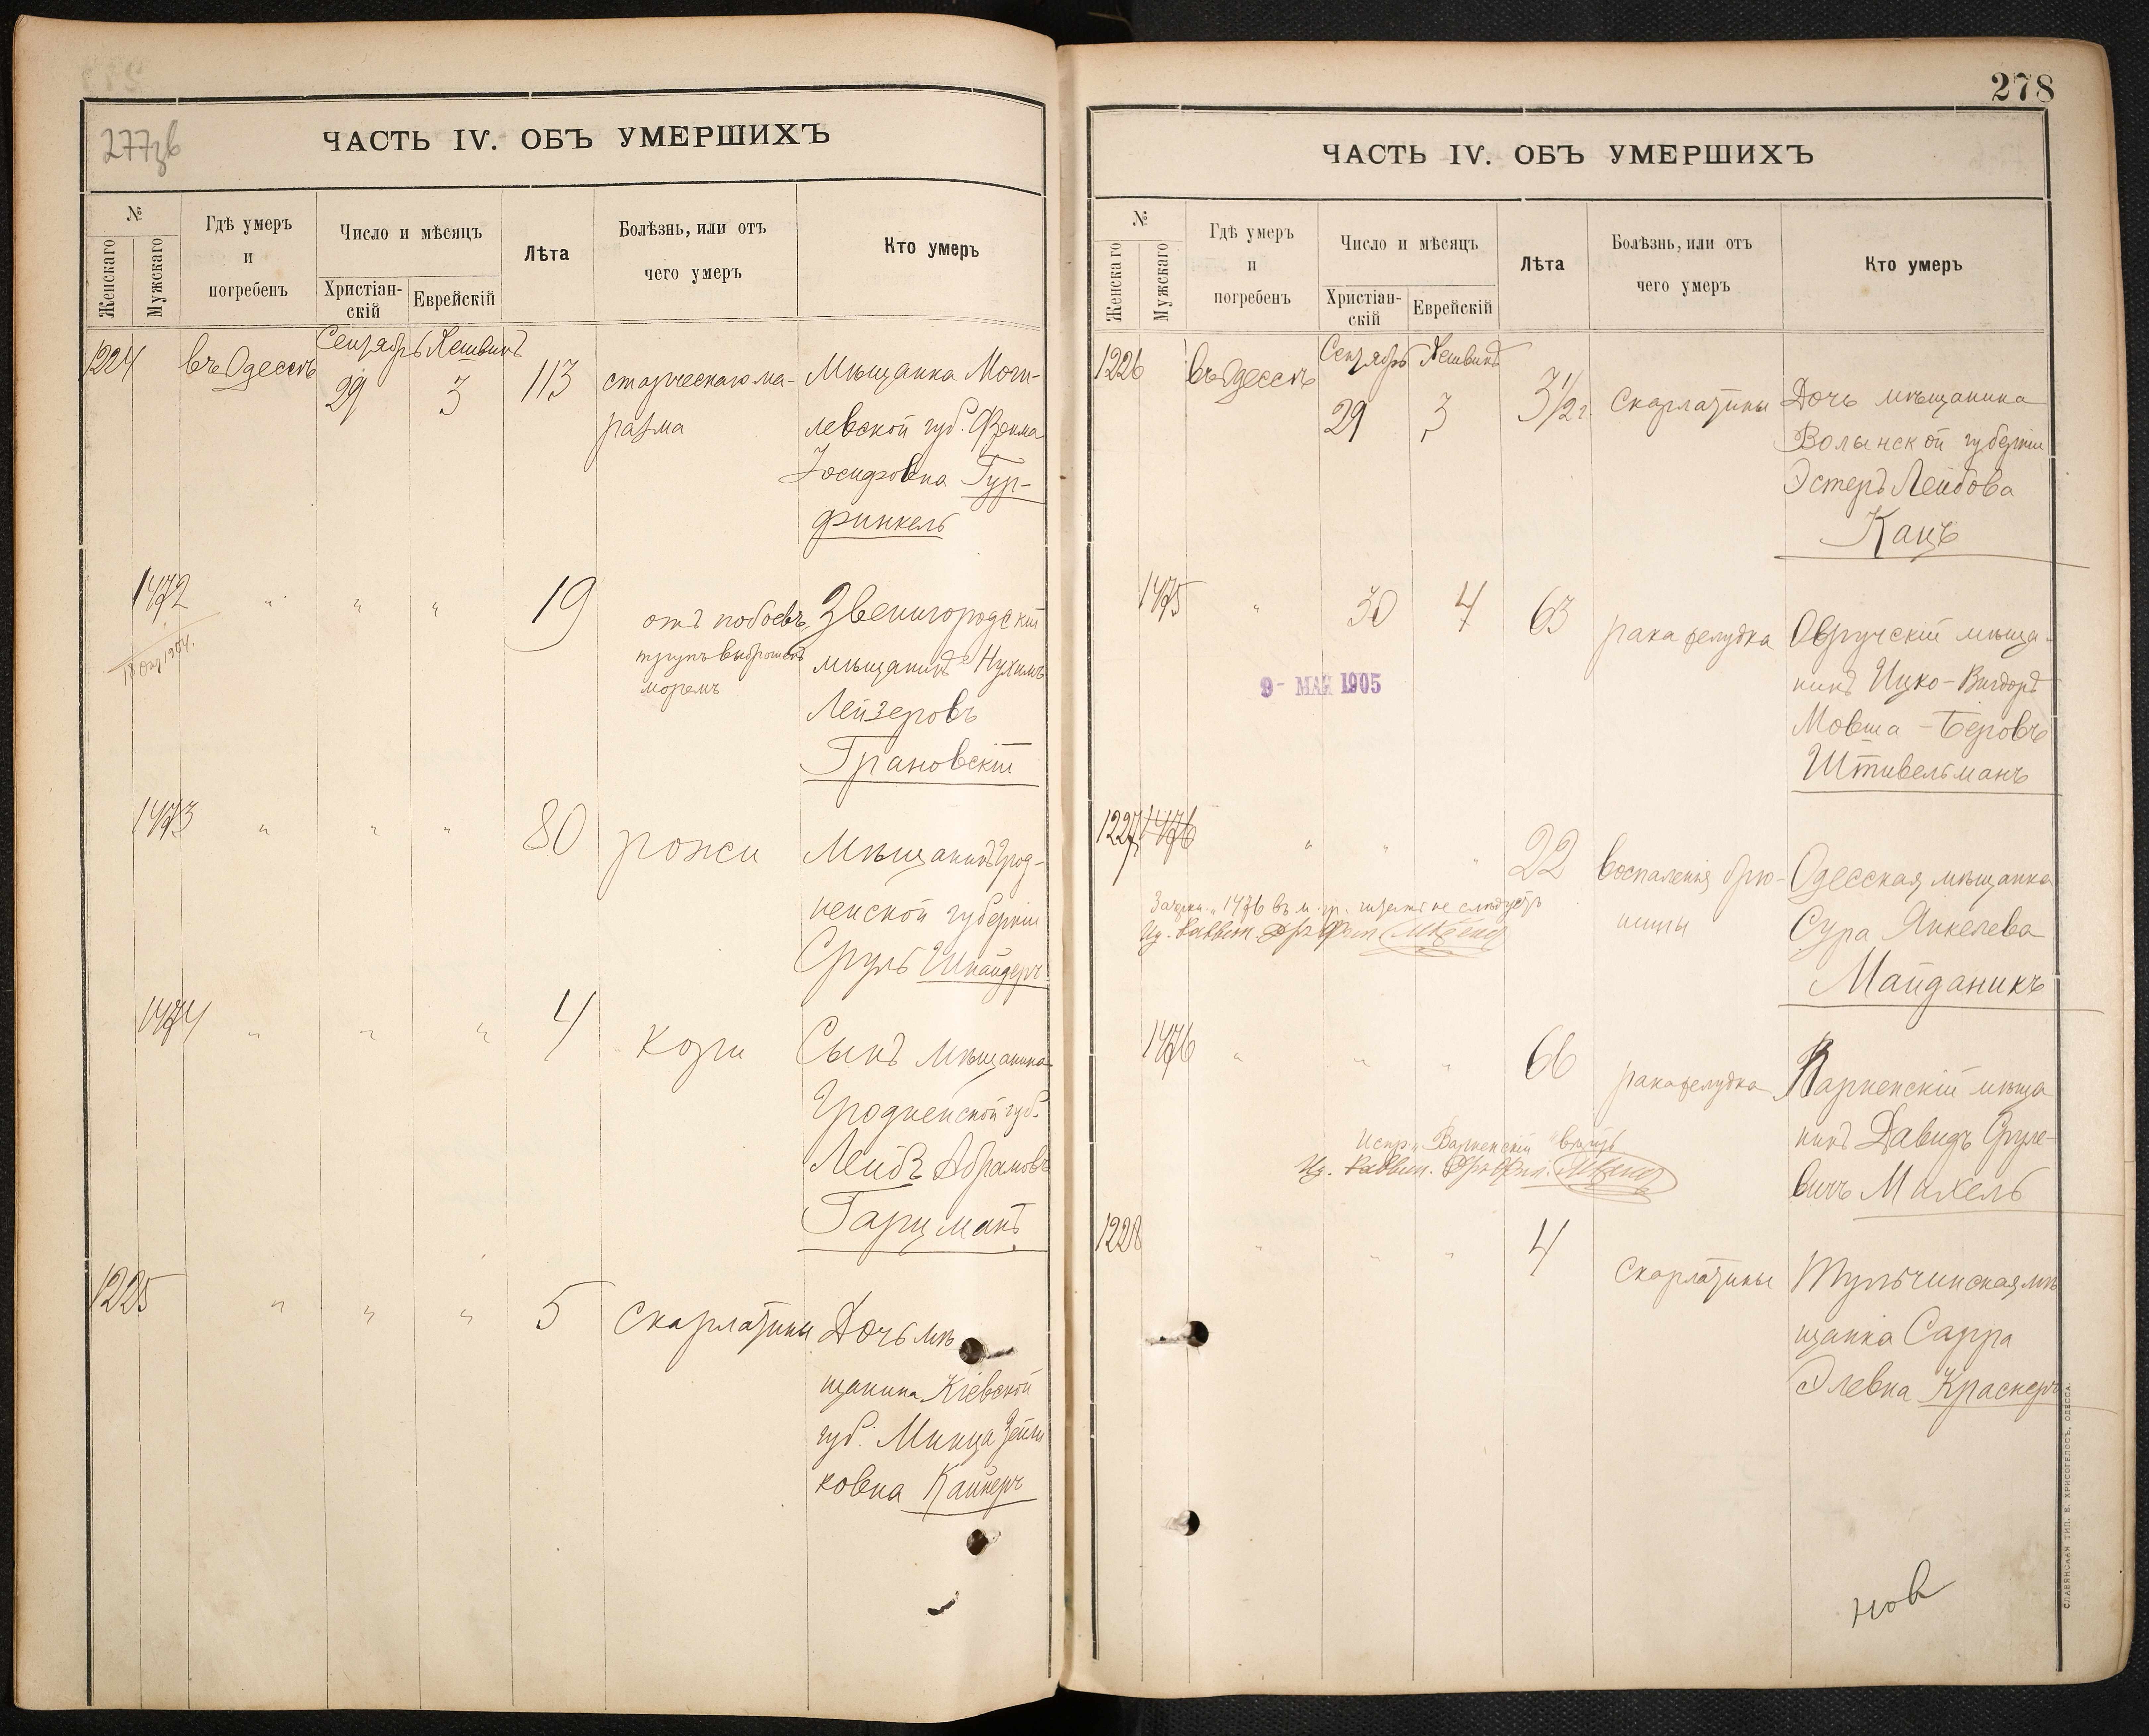 277зв
ЧАСТЬ IV. ОБЪ УМЕРШИХЪ
№
Женскаго
Мужскаго
Гдѣ умеръ
и
погребенъ
Число и мѣсяцъ
Христіан-
скій
Еврейскій
Лѣта
Болѣзнь, или отъ
чего умеръ
Кто умеръ
1224
въ Одессѣ
Сентябрь Хешвинъ
29
3
113
старческаго ма-
разма
Мѣщанка Моги-
левской губ. Фрима
Іосифовна Гур-
финкель
1472
"
"
"
19
отъ побоевъ,
трупъ выброшенъ
моремъ
Звенигородскій
мѣщанинъ Нухимъ
Лейзеровъ
Грановскій
1473
"
"
"
80
рожи
Мѣщанинъ Грод-
ненской губерніи
Сруль Шнайдеръ
1474
"
"
"
4
кори
Сынъ мѣщанина
Гродненской губ.
Лейбъ Абрамовъ
Гарцманъ
1225
"
"
"
5
Скарлатины
Дочь мѣ
щанина Кіевской
губ. Минца
ковна
278
ЧАСТЬ IV. ОБЪ УМЕРШИХЪ
№
Женскаго
Мужскаго
Гдѣ умеръ
и
погребенъ
Число и мѣсяцъ
Христіан-
скій
Еврейскій
Лѣта
Болѣзнь, или отъ
чего умеръ
Кто умеръ
1226
въ Одессѣ
Сентябрь Хешвинъ
29
3
3 1/2 г.
Скарлатины
Дочь мѣщанина
Волынской губерніи
Эстеръ Лейбова
Кацъ
1475
"
30
4
63
рака желудка
Овручскій мѣща-
нинъ Ицко-Вигдоръ
Мовша-Беровъ
Штивельманъ
9- МАЯ 1905
1227
1476
"
"
"
22
воспаленія брю-
шины
Одесская мѣщанка
Сура Янкелева
Майданикъ
1476 въ м. гр. читать не слѣдуетъ
1476
"
"
"
66
рака желудка
Варненскій мѣща
нинъ Давидъ Сруле-
вичъ Михель
Испр. "Варненскій" вѣрить
1228
"
"
"
4
Скарлатины
Тульчинская мѣ
щанка Сарра
Элевна Краснеръ
СЛАВЯНСКАЯ ТИП. Е. ХРИСОГЕЛОСЪ, ОДЕССА.